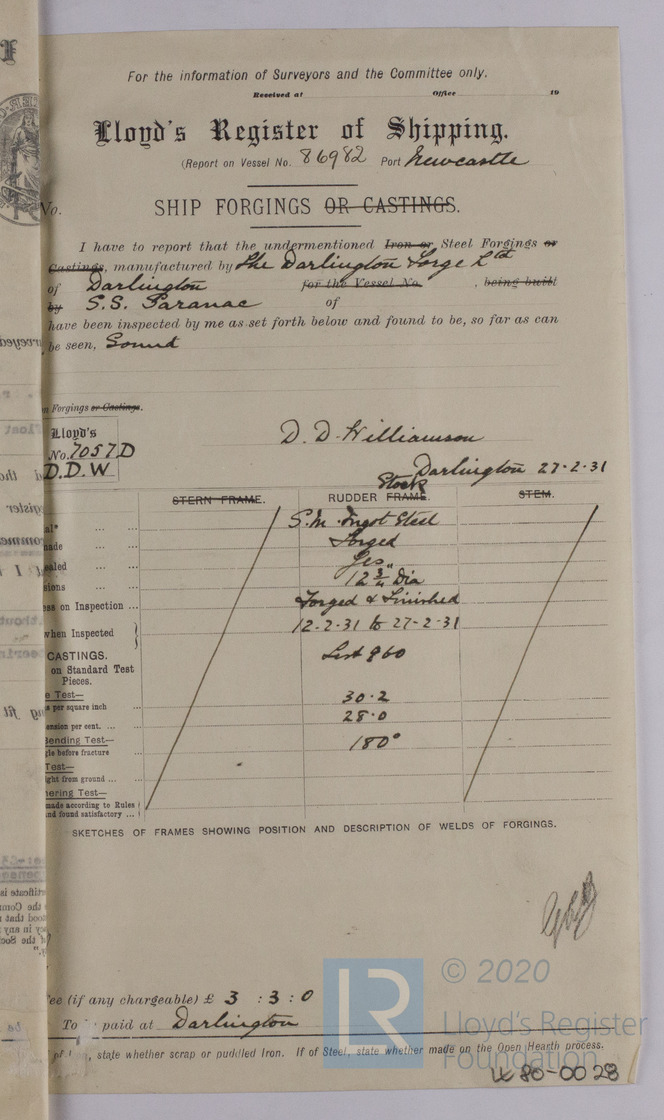 For the information of Surveyors and the Committee only.
Received at Office 19
Lloyd's Register of Shipping.
(Report on Vessel No. 86982 Port Newcastle
No.
SHIP FORGINGS OR CASTINGS.
I have to report that the undermentioned Iron or Steel Forgings or
Castings, manufactured by The Darlington Forge Ltd
of Darlington for the Vessel No. , being built
by S.S. Paranac of
have been inspected by me as set forth below and found to be, so far as can
be seen, Sound
n Forgings or Castings.
Lloyd's
No. 7057D
D.D.W
D. D. Williamson
Darlington 27-2-31
Stock
STERN FRAME. RUDDER FRAME. STEM.
al* ... ... S.M. Ingot Steel
made ... ... Forged
ealed ... ... Yes
sions ... ... 12 3/4" Dia
ess on Inspection ... Forged & Finished
when Inspected 12-2-31 to 27-2-31
CASTINGS. List 960
on Standard Test
Pieces.
e Test—
s per square inch 30.2
ension per cent. ... ... 28.0
Bending Test—
gle before fracture 180°
Test—
ight from ground ... ...
mering Test—
made according to Rules
and found satisfactory ...
SKETCHES OF FRAMES SHOWING POSITION AND DESCRIPTION OF WELDS OF FORGINGS.
Fee (if any chargeable) £ 3 : 3 : 0
To be paid at Darlington
, state whether scrap or puddled Iron. If of Steel, state whether made on the Open Hearth process.
© 2020
LR
Lloyd's Register
Foundation
W80-0028